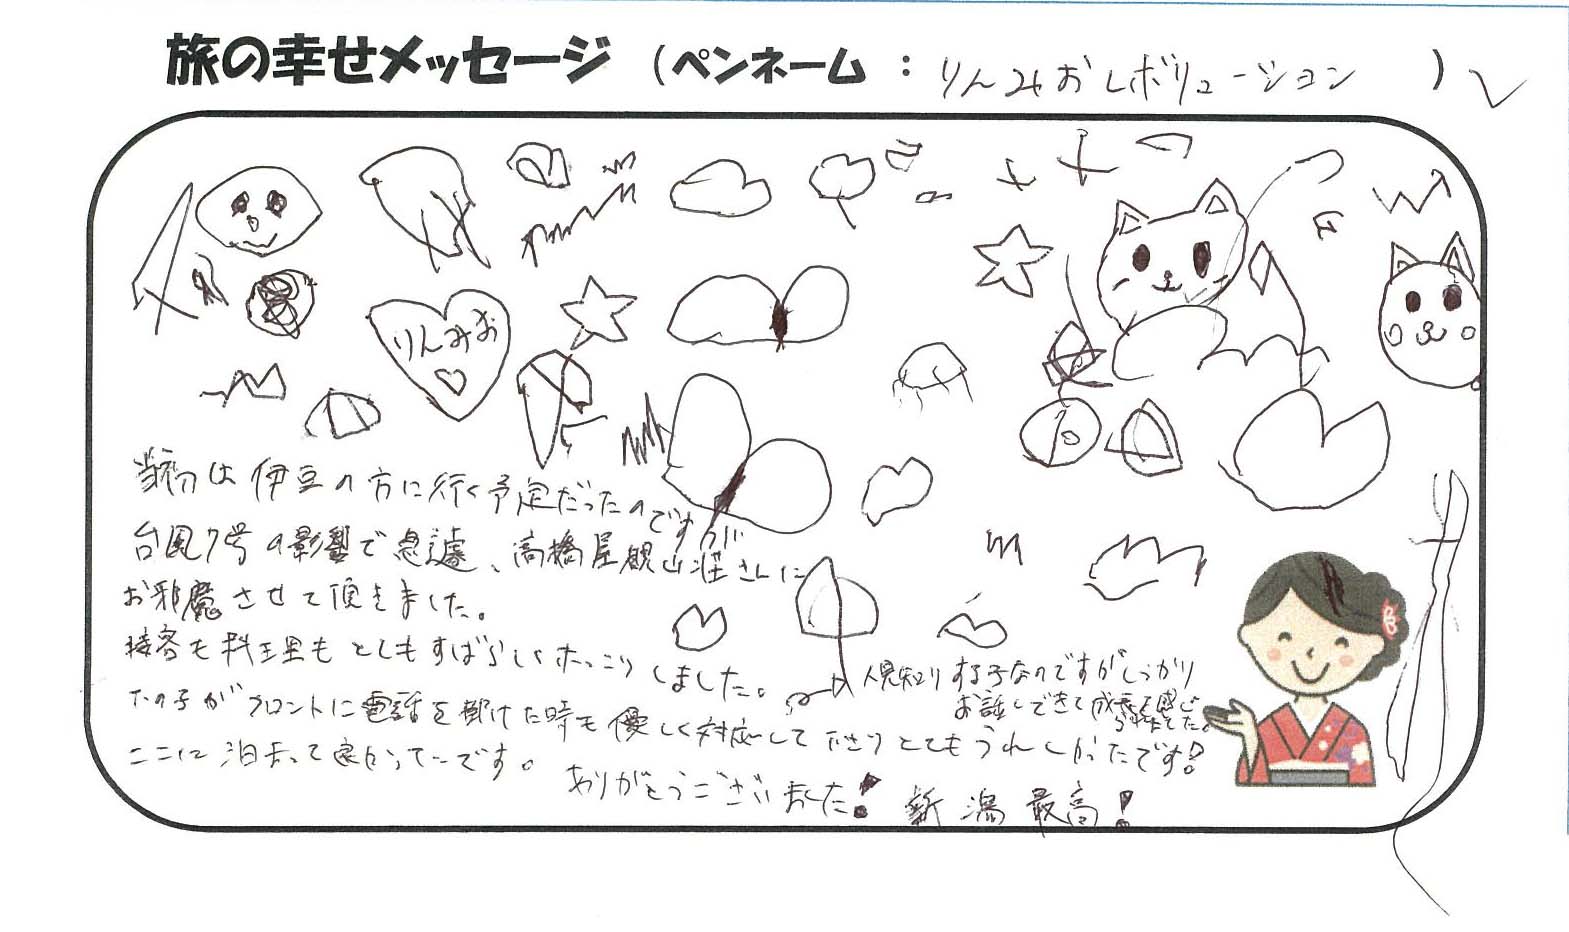 旅の幸せメッセージ（ペンネーム：りんみおレボリューション）
りんみお
当初は伊豆の方に行く予定だったのですが
台風7号の影響で急遽、高橋屋観山荘さんに
お邪魔させて頂きました。
接客も料理もとてもすばらしくほっこりしました。
人見知りする子なのですがしっかり
お話しできて成長を感じ
られました。
下の子がフロントに電話を掛けた時も優しく対応して下さりとてもうれしかったです!
ここに泊まって良かったです。
ありがとうございました!
新潟最高!